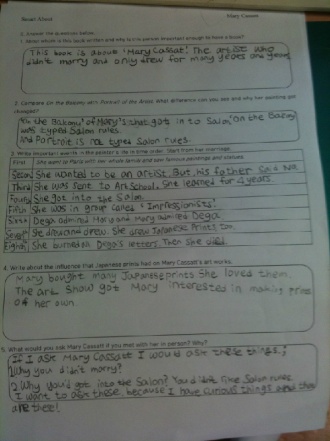 Read Aloud
Mary Cassatt
I. Answer the question below
1. About whom is this book written and why is the person important enough to have a book?
This book is about 'Mary Cassat'. The artist who
didn't marry and only drew for many years and years
2. Compare On the Balcony with Portrait of the Artist. What difference can you see and why her painting got
changed?
On the Balcony of Mary's that got in to Salon, On the Balcony
was typed Salon rules.
And Portrait is not typed Salon rules.
3. Write important events in the painter's life in time order. Start from her marriage.
First She went to Paris with her whole family and saw famous paintings and statues.
Second She wanted to be an artist. But his father said NO!
Third She was sent to Art School. She learned for 4 years.
Fourth She got into the Salon.
Fifth She was in group called "Impressionists!
Sixth Dega admired Mary and Mary admired Dega.
Seventh She draw and drew. She drew Japanese Prints too.
Eighth She burned on Dega's letters. Then she died.
4. Write about the influence that Japanese prints had on Mary Cassatt's art works.
Mary bought many Japanese prints She loved them.
The art show got Mary interested in making prints
of her own.
5. What would you ask Mary Cassatt if you met with her in person? Why?
If I ask Mary Cassatt I would ask these things,;
1 Why you didn't marry?
2 Why you'd got into the Salon? You didn't like Salon rules
I want to ask these because I have curious things and they
are these!